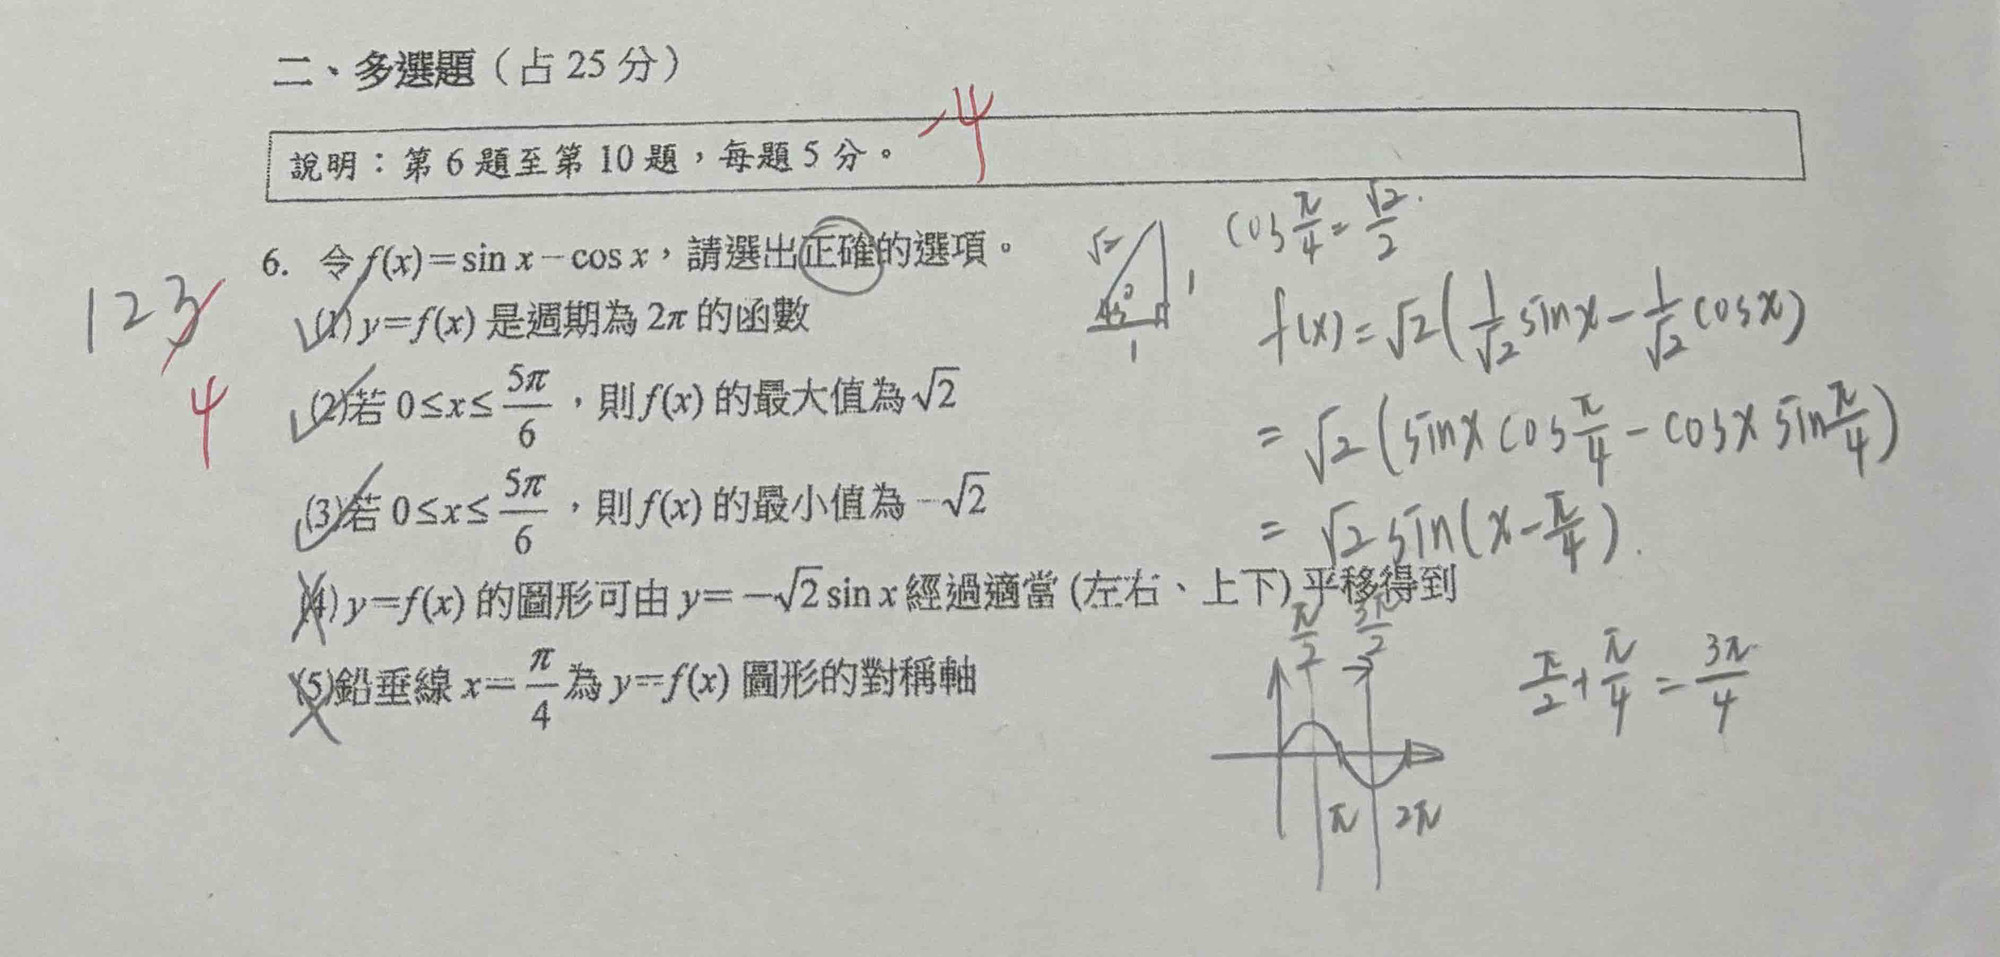 二、多選題（占 25 分）
-4
說明：第 6 題至第 10 題，每題 5 分。
6. 令 f(x)=sin x－cos x，請選出正確的選項。
(1) y=f(x) 是週期為 2π 的函數
(2)若 0≤x≤5π/6，則 f(x) 的最大值為 √2
(3)若 0≤x≤5π/6，則 f(x) 的最小值為 －√2
(4) y=f(x) 的圖形可由 y=－√2 sin x 經過適當 (左右、上下) 平移得到
(5)鉛垂線 x=π/4 為 y=f(x) 圖形的對稱軸
123
4
√2
45°
1
1
cos π/4 = √2/2.
f(x) = √2 (1/√2 sinx - 1/√2 cosx)
= √2 (sinx cos π/4 - cosx sin π/4)
= √2 sin(x - π/4).
π/2 3π/2
π 2π
π/2 + π/4 = 3π/4